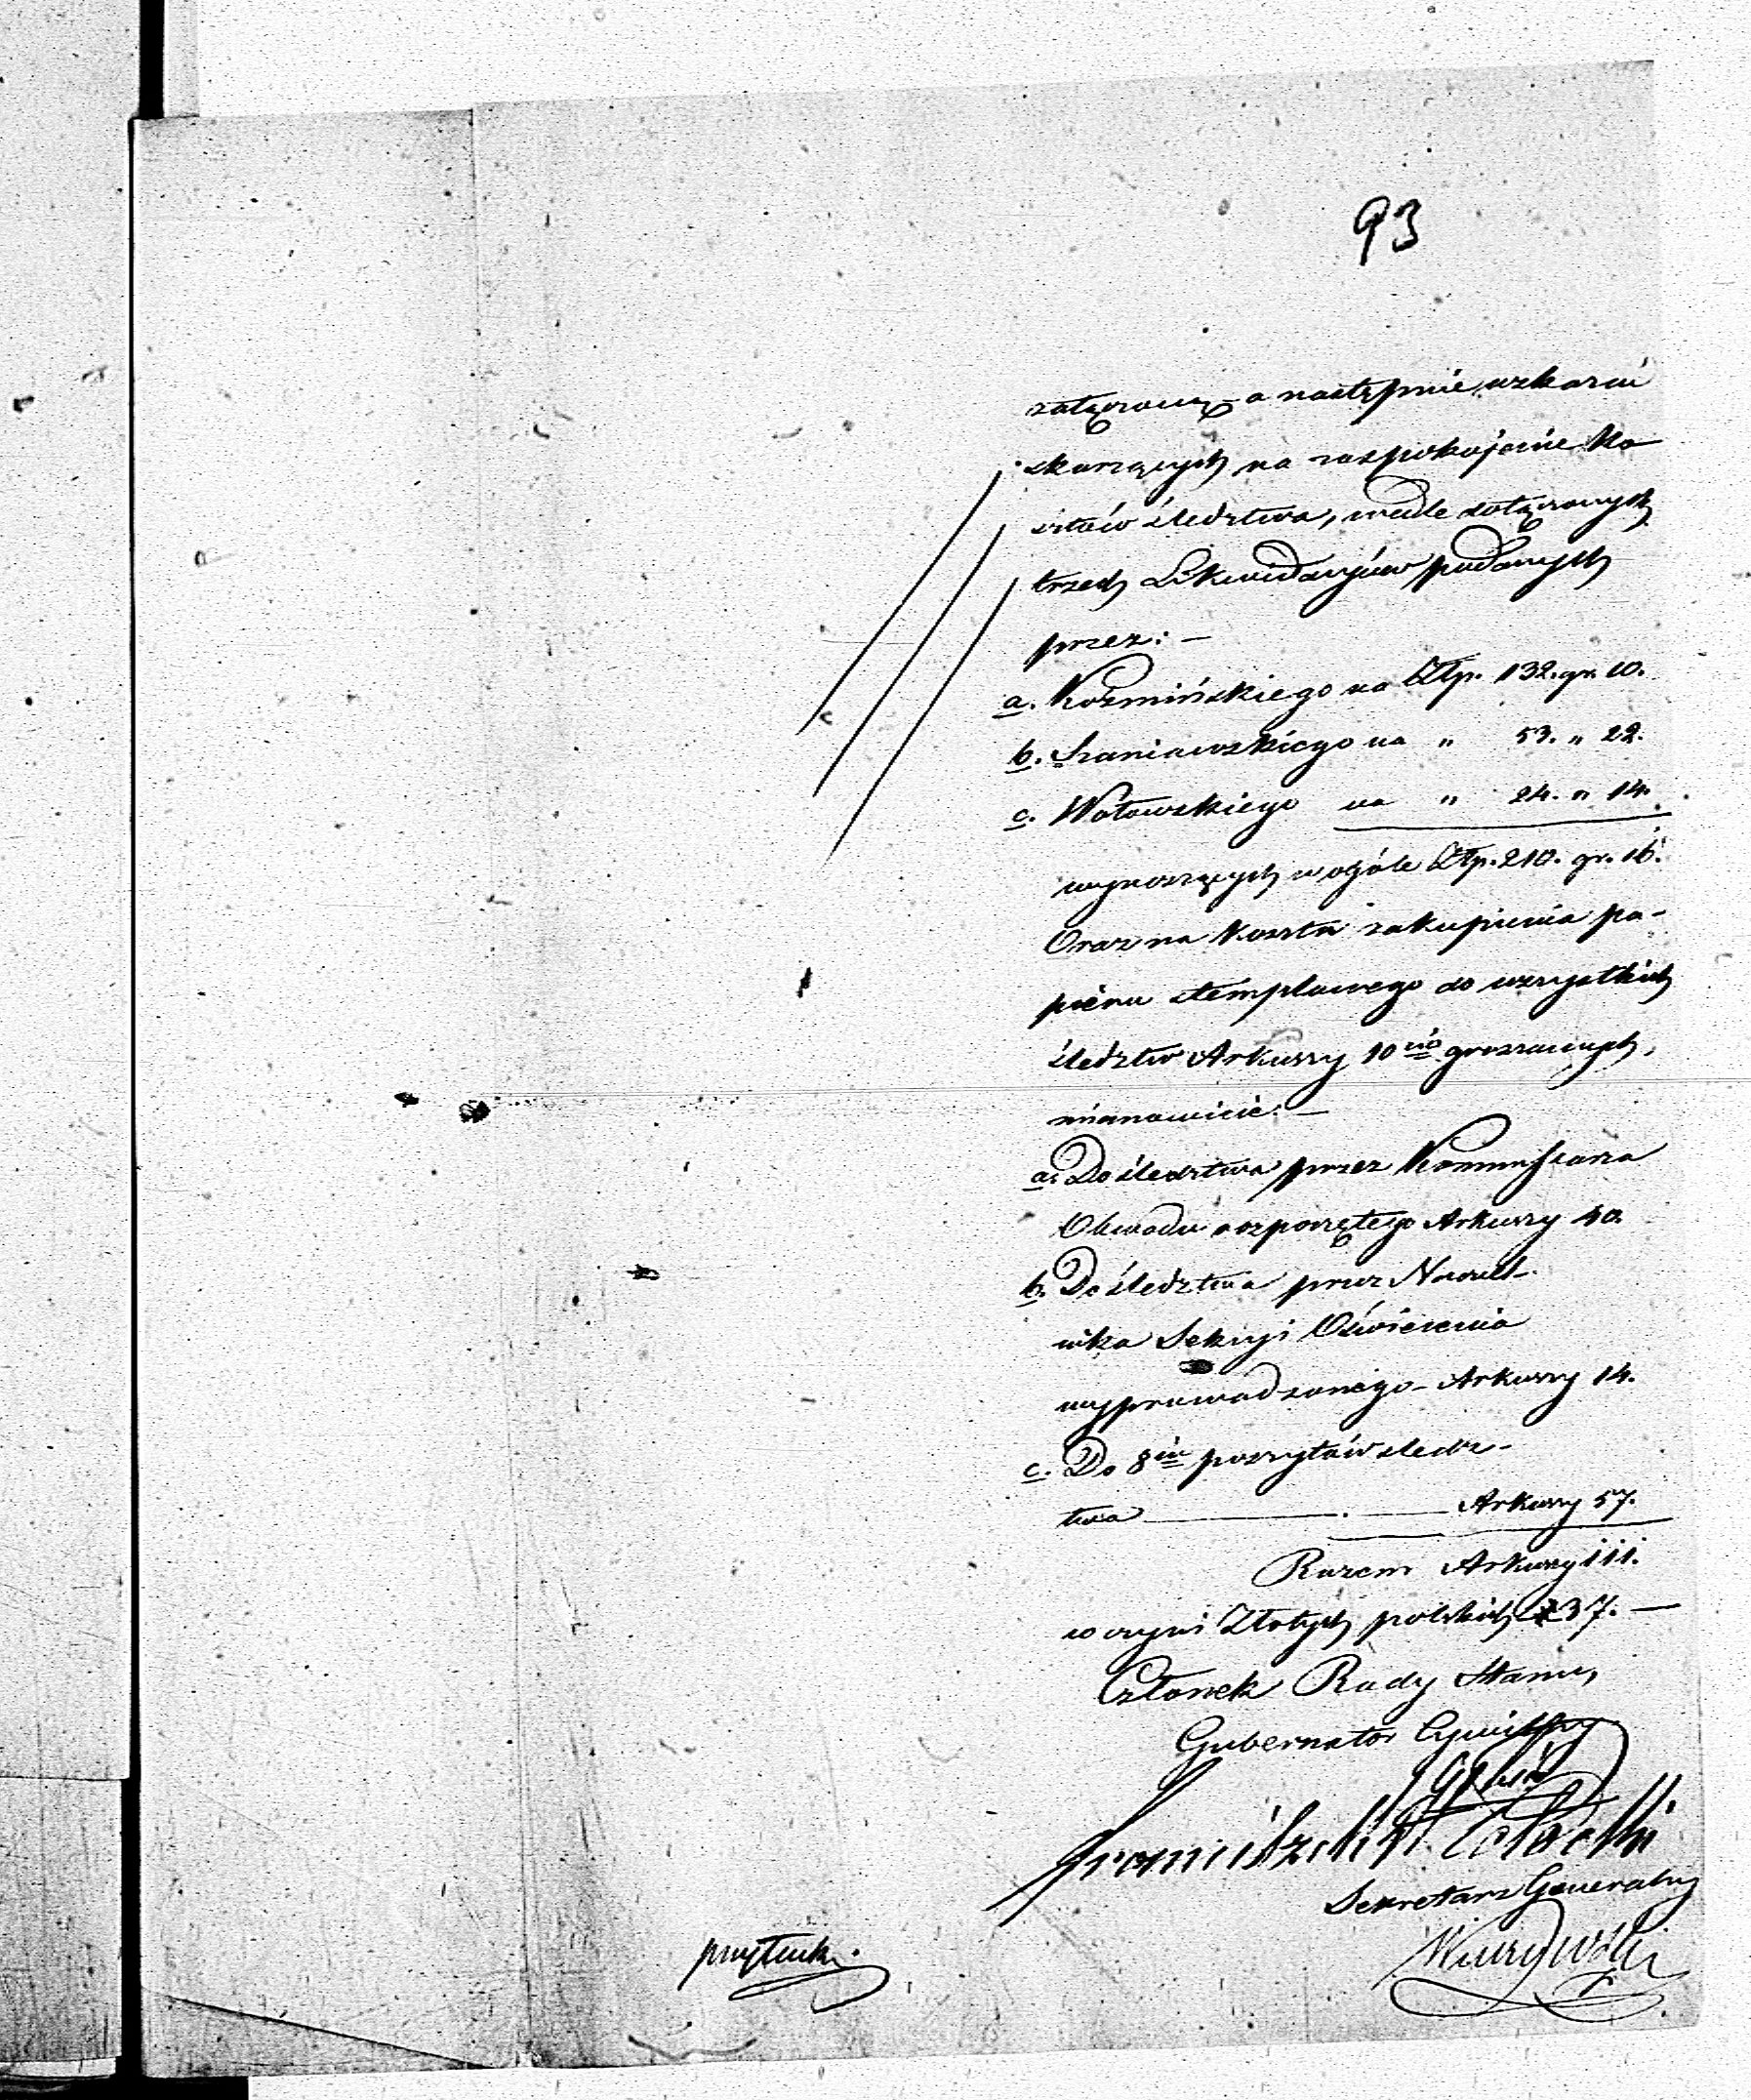 93
załączony a następnie wskazać
skarżących na zaspokojenie Ko
sztów śledztwa, wedle załączonych
trzech Likwidacyów podanych
przez: —
a. Koźmińskiego na Złp. 132. gr. 10.
b. Szaniawskiego na " 53. " 22.
c. Wołowskiego na " 24. " 14.
wynoszących w ogóle Złp. 210. gr. 16.
Oraz na koszta zakupienia pa-
pieru stemplowego do wszystkich
śledztw Arkuszy 10cio groszowych,
mianowicie: —
a. Do śledztwa przez Kommissarza
Obwodu rozpoczętego Arkuszy 40.
b. Do śledztwa przez Naczel-
nika Sekcyi Oświecenia
wyprowadzonego - Arkuszy 14.
c. Do 8iu poszytów śledz-
twa — . — Arkuszy 57.
Razem Arkuszy 111.
w czyni Złotych polskich 37. —
Członek Rady Stanu,
Gubernator Cywilny
Potocki
Sekretarz Generalny